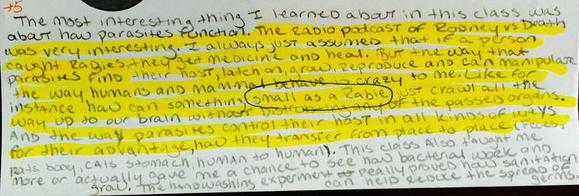 +5
The most interesting thing I learned about in this class was
about how parasites function. The radio podcast of Rodney vs Death
was very interesting. I always just assumed that if a person
caught Rabies, they get medicine and heal. But the way that
parasites find their host, latch on, grow, reproduce and can manipulate
the way humans and mammal behave is crazy to me. Like for
instance how can something small as a Rabie just crawl all the
way up to our brain without of the passed organs.
And the way parasites control their host in all kinds of ways
for their advantage, how they transfer from place to place
rats body, cats stomach, human to human). This class Also taught me
more or actually gave me a chance to see how bacterial work and
grow. The handwashing experiment really proved how sanitation
can help reduce the spreads of
germs